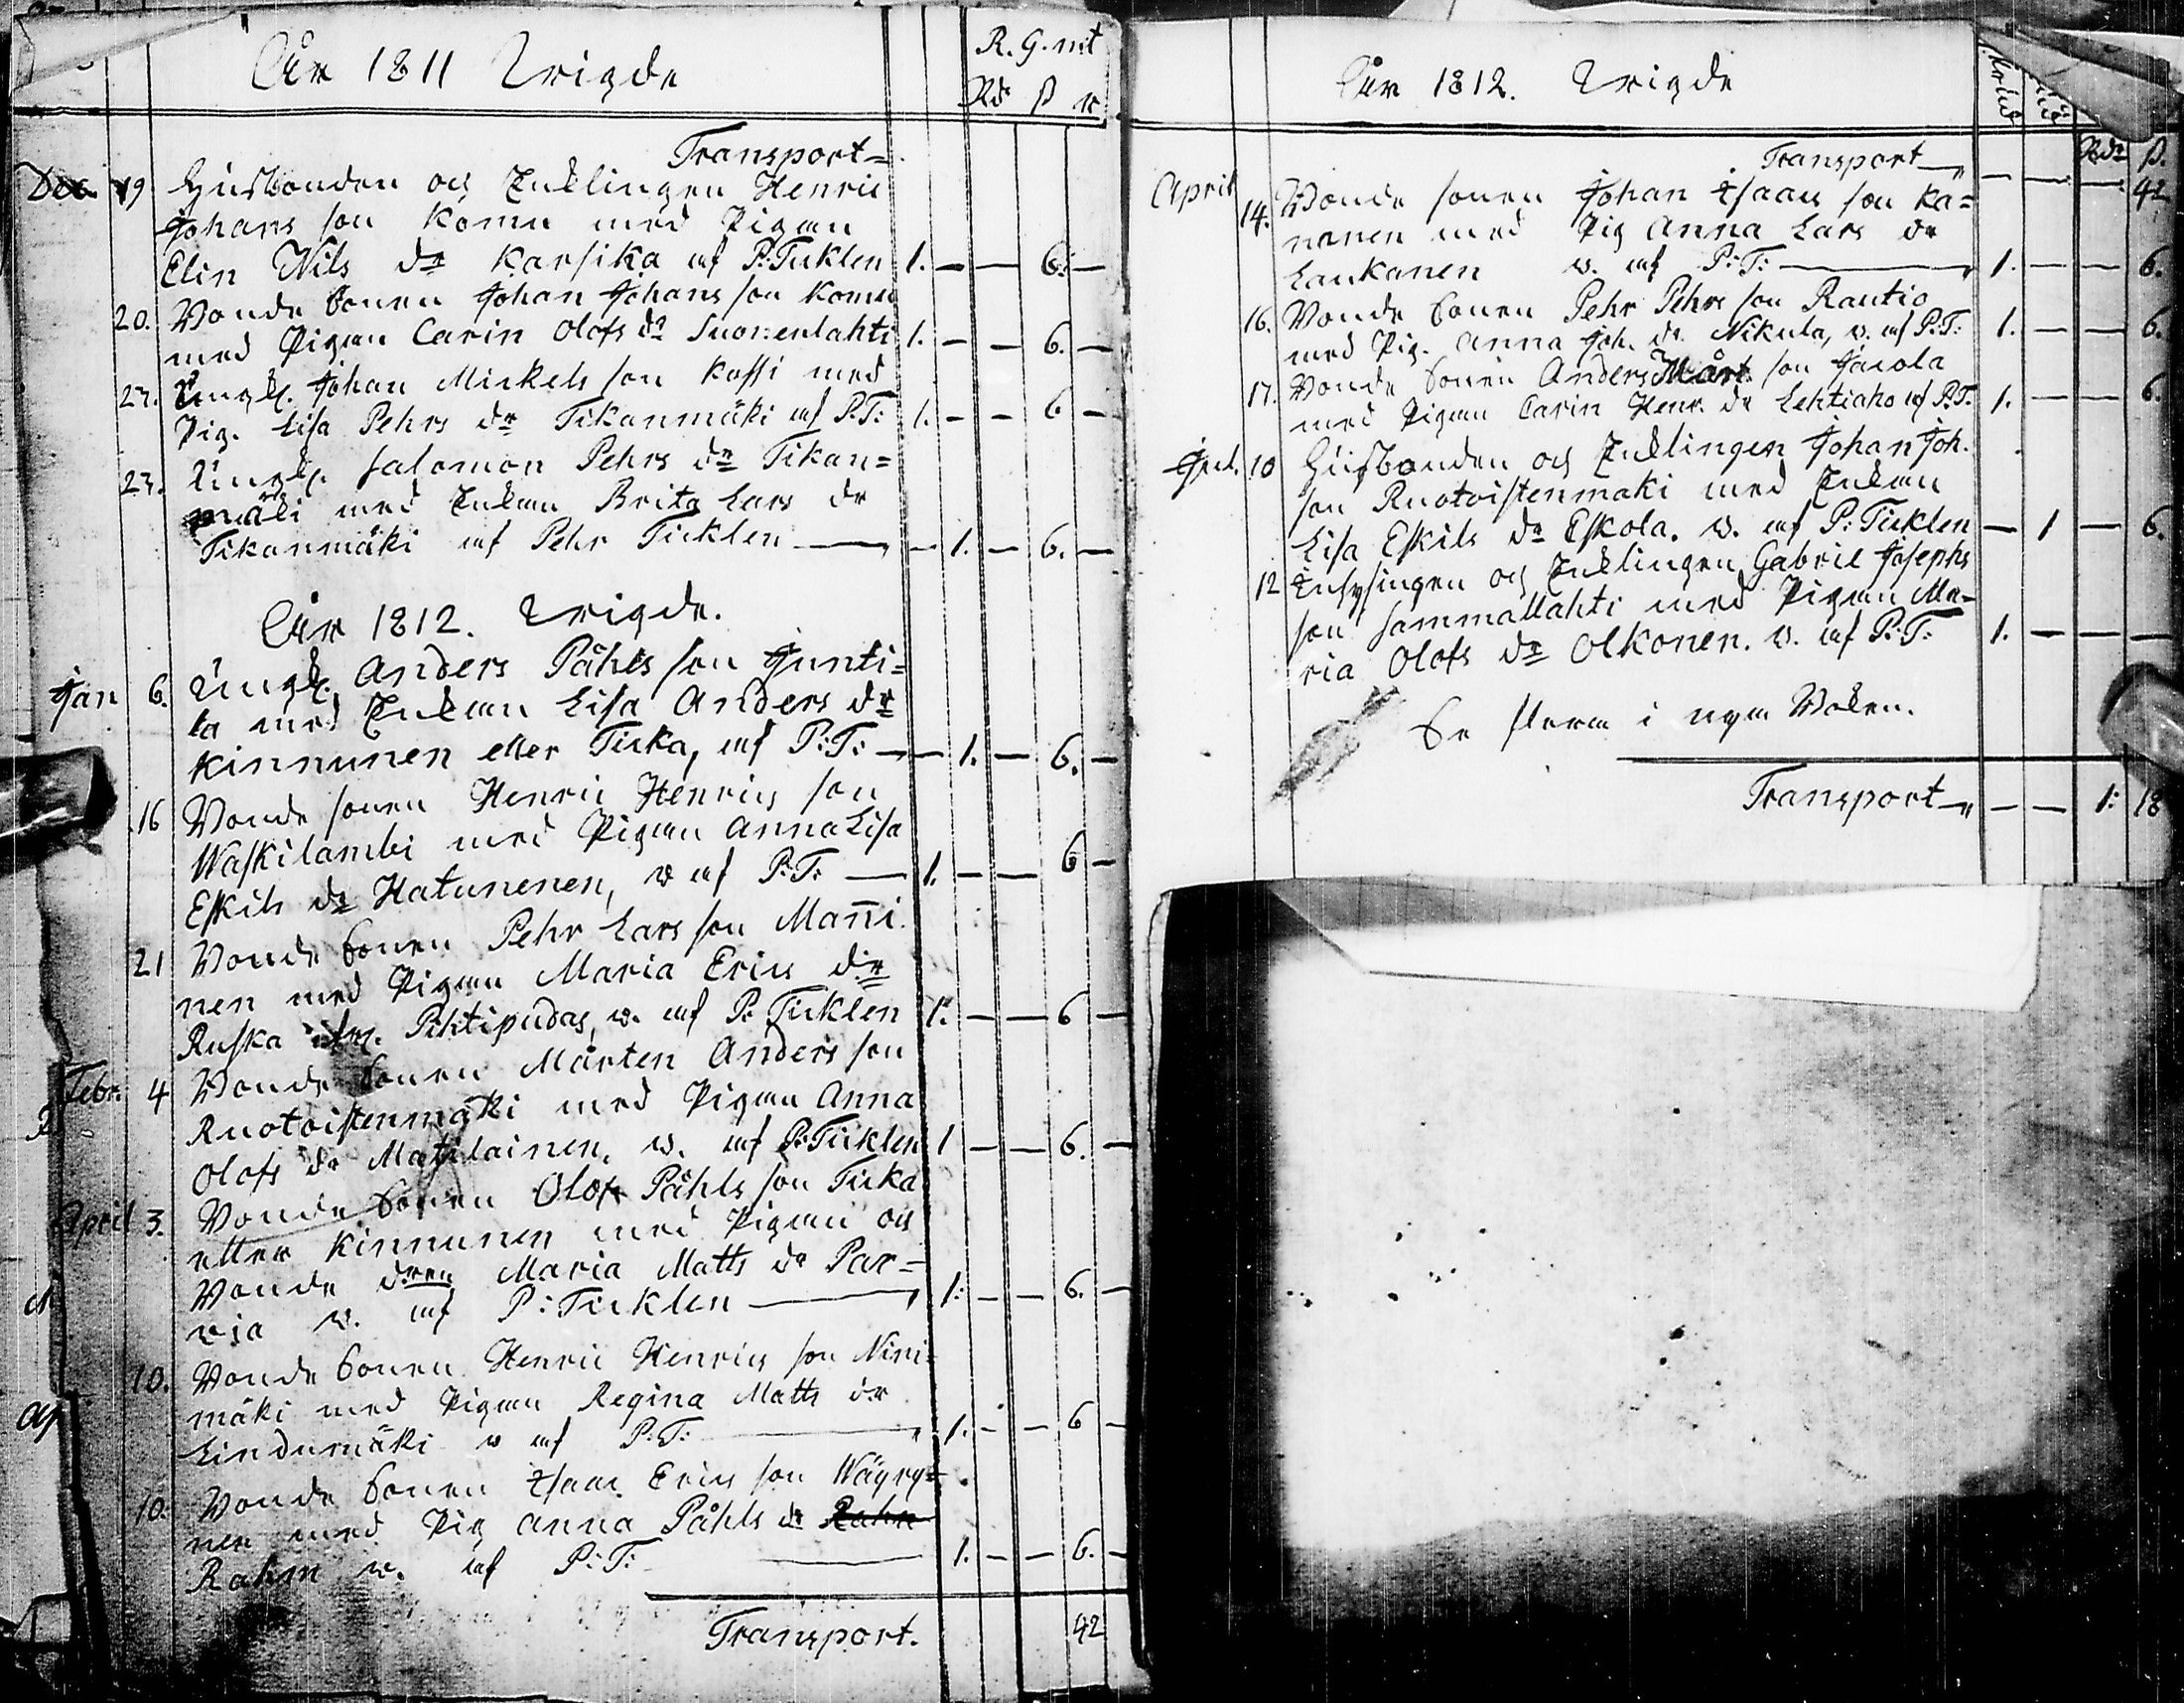 År 1811 Wigde
R. G. mt
Rd ß r
Transport
Dec. 19 Husbonden och Enklingen Henric
Johans son Komu med Pigan
Elin Nils dr Karsika af P: Ticklen 1. — — 6. —
20. Bonde Sonen Johan Johans son Komu
med Pigan Carin Olofs dr Suovenlahti 1. — — 6. —
27. Ungk. Johan Mickels son Kossi med
Pig. Lisa Pehrs dr Tikanmäki af P.T: 1. — — 6 —
27. Ungk. Salomon Pehrs dr Tikan=
mäki med Enkan Brita Lars dr
Tikanmäki af Pehr Ticklen — 1. — 6. —
År 1812. Wigde.
Jan 6. Ungk. Anders Påhls son Junti=
la med Enkan Lisa Anders dr
Kinnunen eller Ticka, af P:T: — 1. — 6. —
16 Bonde sonen Henric Henrics son
Waskilambi med Pigan Anna Lisa
Eskils dr Hatunenen, w af P:T: — 1. — — 6 —
21 Bonde Sonen Pehr Lars son Mañi
nen med Pigan Maria Erics dr
Ruska ifr. Pihtipudas, w. af P: Ticklen 1. — — 6 —
Febr. 4 Bonde Sonen Mårten Anders son
Ruotoistenmäki med Pigan Anna
Olofs dr Matilainen, w. af P: Ticklen 1 — — 6. —
April 3. Bonde Sonen Olof Påhls son Ticka
eller Kinnunen med Pigan och
Bonde dren Maria Matts dr Par=
via w. af P: Ticklen — 1: — — 6. —
10. Bonde Sonen Henric Henrics son Nini=
mäki med Pigan Regina Matts dr
Lindumäki w af P:T: 1. — — 6 —
10. Bonde Sonen Isaac Erics son Wäyry=
nen med Pig Anna Påhls dr Rahm
Rahm w. af P:T: — 1. — — 6. —
Transport. 42
År 1812. Wigde
Rdr ß.
Transport — — — 42
April 14. Bonde sonen Johan Isaacs son Ka=
nanen med Pig Anna Lars dr
Laukanen w. af P:T: — 1. — — 6.
16. Bonde Sonen Pehr Pehrs son Rautio
med Pig. Anna Joh. dr. Nikula, w. af P:T: 1. — — 6.
17. Bonde Sonen Anders Mårt. son Jacola
med Pigan Carin Henr. dr Lehtiaho af P.T. 1. — — 6.
10 Husbonden och Enklingen Johan Joh.
son Ruotoistenmäki med Enkan
Lisa Eskils dr Eskola. w. af P: Ticklen — 1 — 6.
12 Inhysingen och Enklingen Gabriel Josephs
son Sammallahti med Pigan Ma=
ria Olofs dr Olkonen. w. af P:T: 1. — — —
Se flera i nya Boken.
Transport — — 1: 18